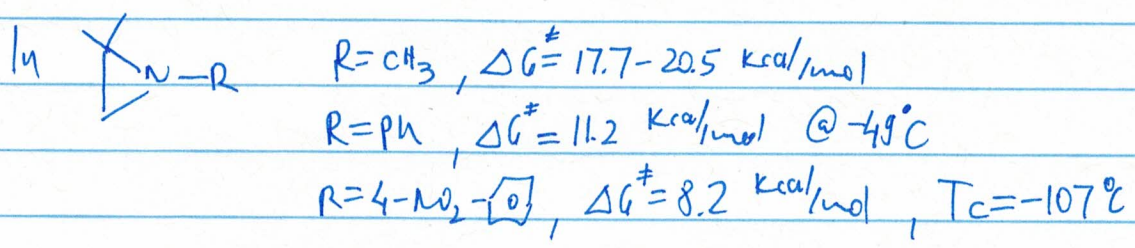 In N-R R=CH3, ΔG≠=17.7-20.5 Kcal/mol
R=Ph, ΔG≠=11.2 Kcal/mol @ -49°C
R=4-NO2-, ΔG≠=8.2 Kcal/mol, Tc=-107°C